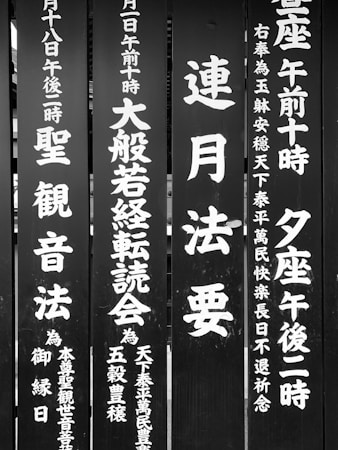 座 午前十時 夕座 午後二時
右奉為玉躰安穏天下泰平萬民快楽長日不退祈念
連月法要
月一日午前十時 大般若経転読会 為
天下泰平萬民豊
五穀豊穣
月十八日午後二時 聖観音法 為
本尊聖観世音菩
御縁日